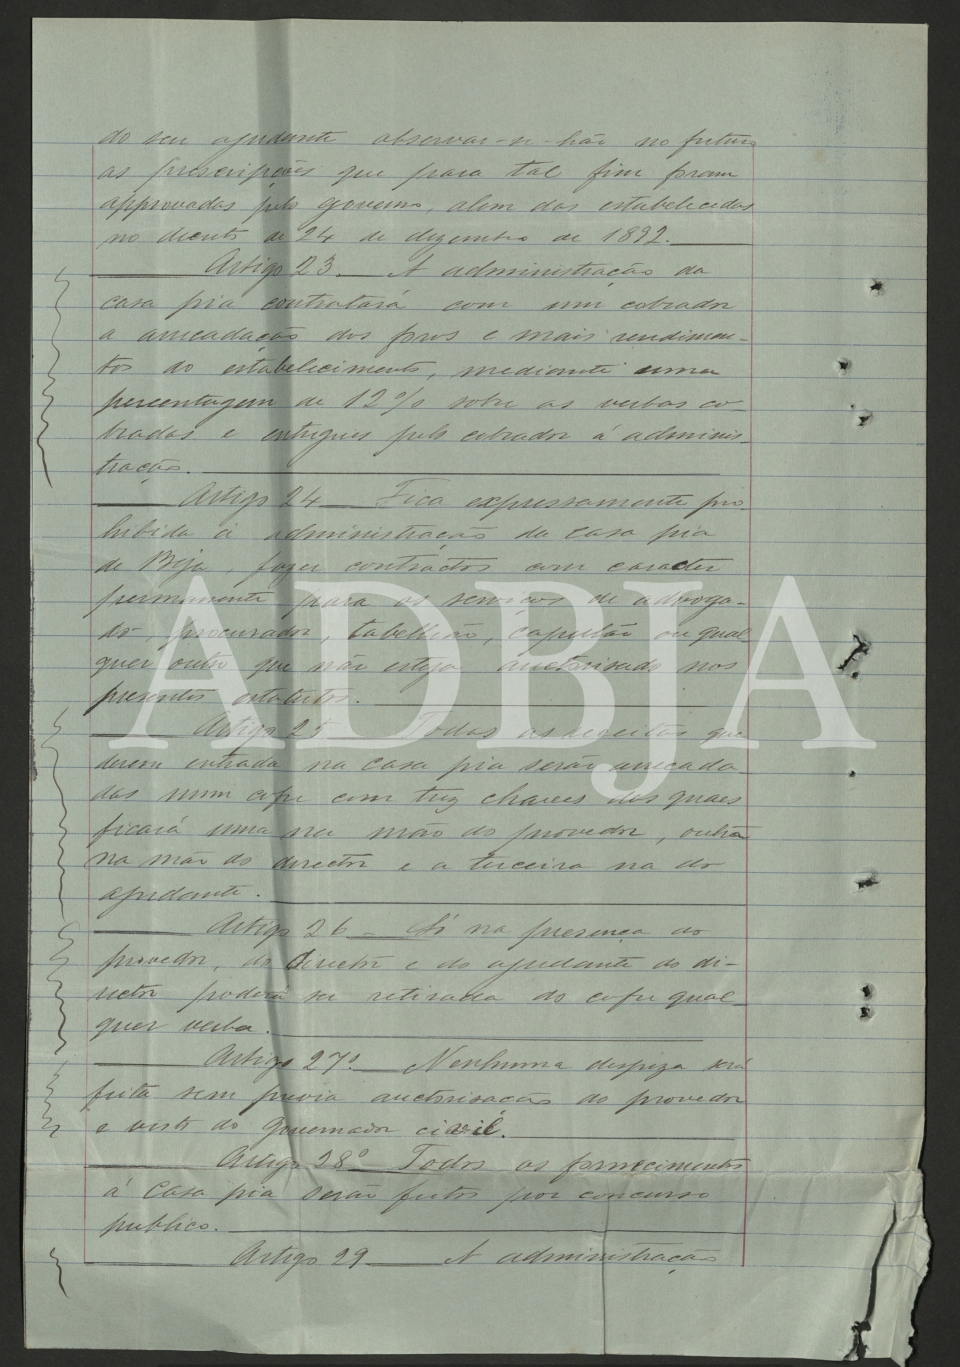 do seu ajudante observar-se-hão no futuro
as prescripções que para tal fim foram
approvadas pelo governo, alem das estabelecidas
no decreto de 24 de dezembro de 1892.
Artigo 23. A administração da
casa pia contratará com um cobrador
a arrecadação dos foros e mais rendimen-
tos do estabelecimento, mediante uma
percentagem de 12% sobre as verbas co-
bradas e entregues pelo cobrador á adminis-
tração.
Artigo 24 Fica expressamente pro-
hibida á administração da casa pia
de Beja, fazer contractos com caracter
permanente para os serviços de advoga-
do, procurador, tabellião, capellão ou qual-
quer outro que não esteja auctorisado nos
presentes estatutos.
Artigo 25 Todas as receitas que
derem entrada na casa pia serão arrecada-
das num cofre com trez chaves das quaes
ficará uma na mão do provedor, outra
na mão do director e a terceira na do
ajudante.
Artigo 26 - Só na presença do
provedor, do director e do ajudante do di-
rector poderá ser retirada do cofre qual-
quer verba.
Artigo 27º Nenhuma despeza será
feita sem previa auctorisação do provedor
e visto do governador civil.
Artigo 28º Todos os fornecimentos
á casa pia serão feitos por concurso
publico.
Artigo 29 A administração
ADBJA